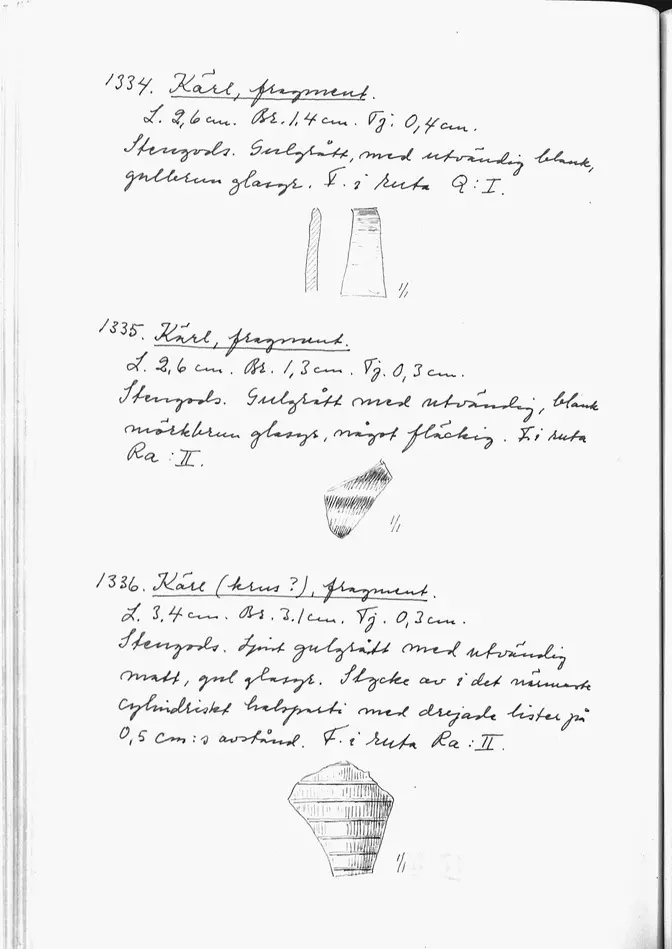 1334. Kärl, fragment.
L. 2,6 cm. Br. 1,4 cm. Tj. 0,4 cm.
Stengods. Gulgrått, med utvändig blank,
gulbrun glasyr. F. i ruta Q : I.
1/1
1335. Kärl, fragment.
L. 2,6 cm. Br. 1,3 cm. Tj. 0,3 cm.
Stengods. Gulgrått med utvändig, blank
mörkbrun glasyr, något fläckig. F. i ruta
Ra : II.
1/1
1336. Kärl (krus?), fragment.
L. 3,4 cm. Br. 3,1 cm. Tj. 0,3 cm.
Stengods. Ljust gulgrått med utvändig
matt, gul glasyr. Stycke av i det närmaste
cylindriskt halsparti med drejade lister på
0,5 cm:s avstånd. F. i ruta Ra : II.
1/1